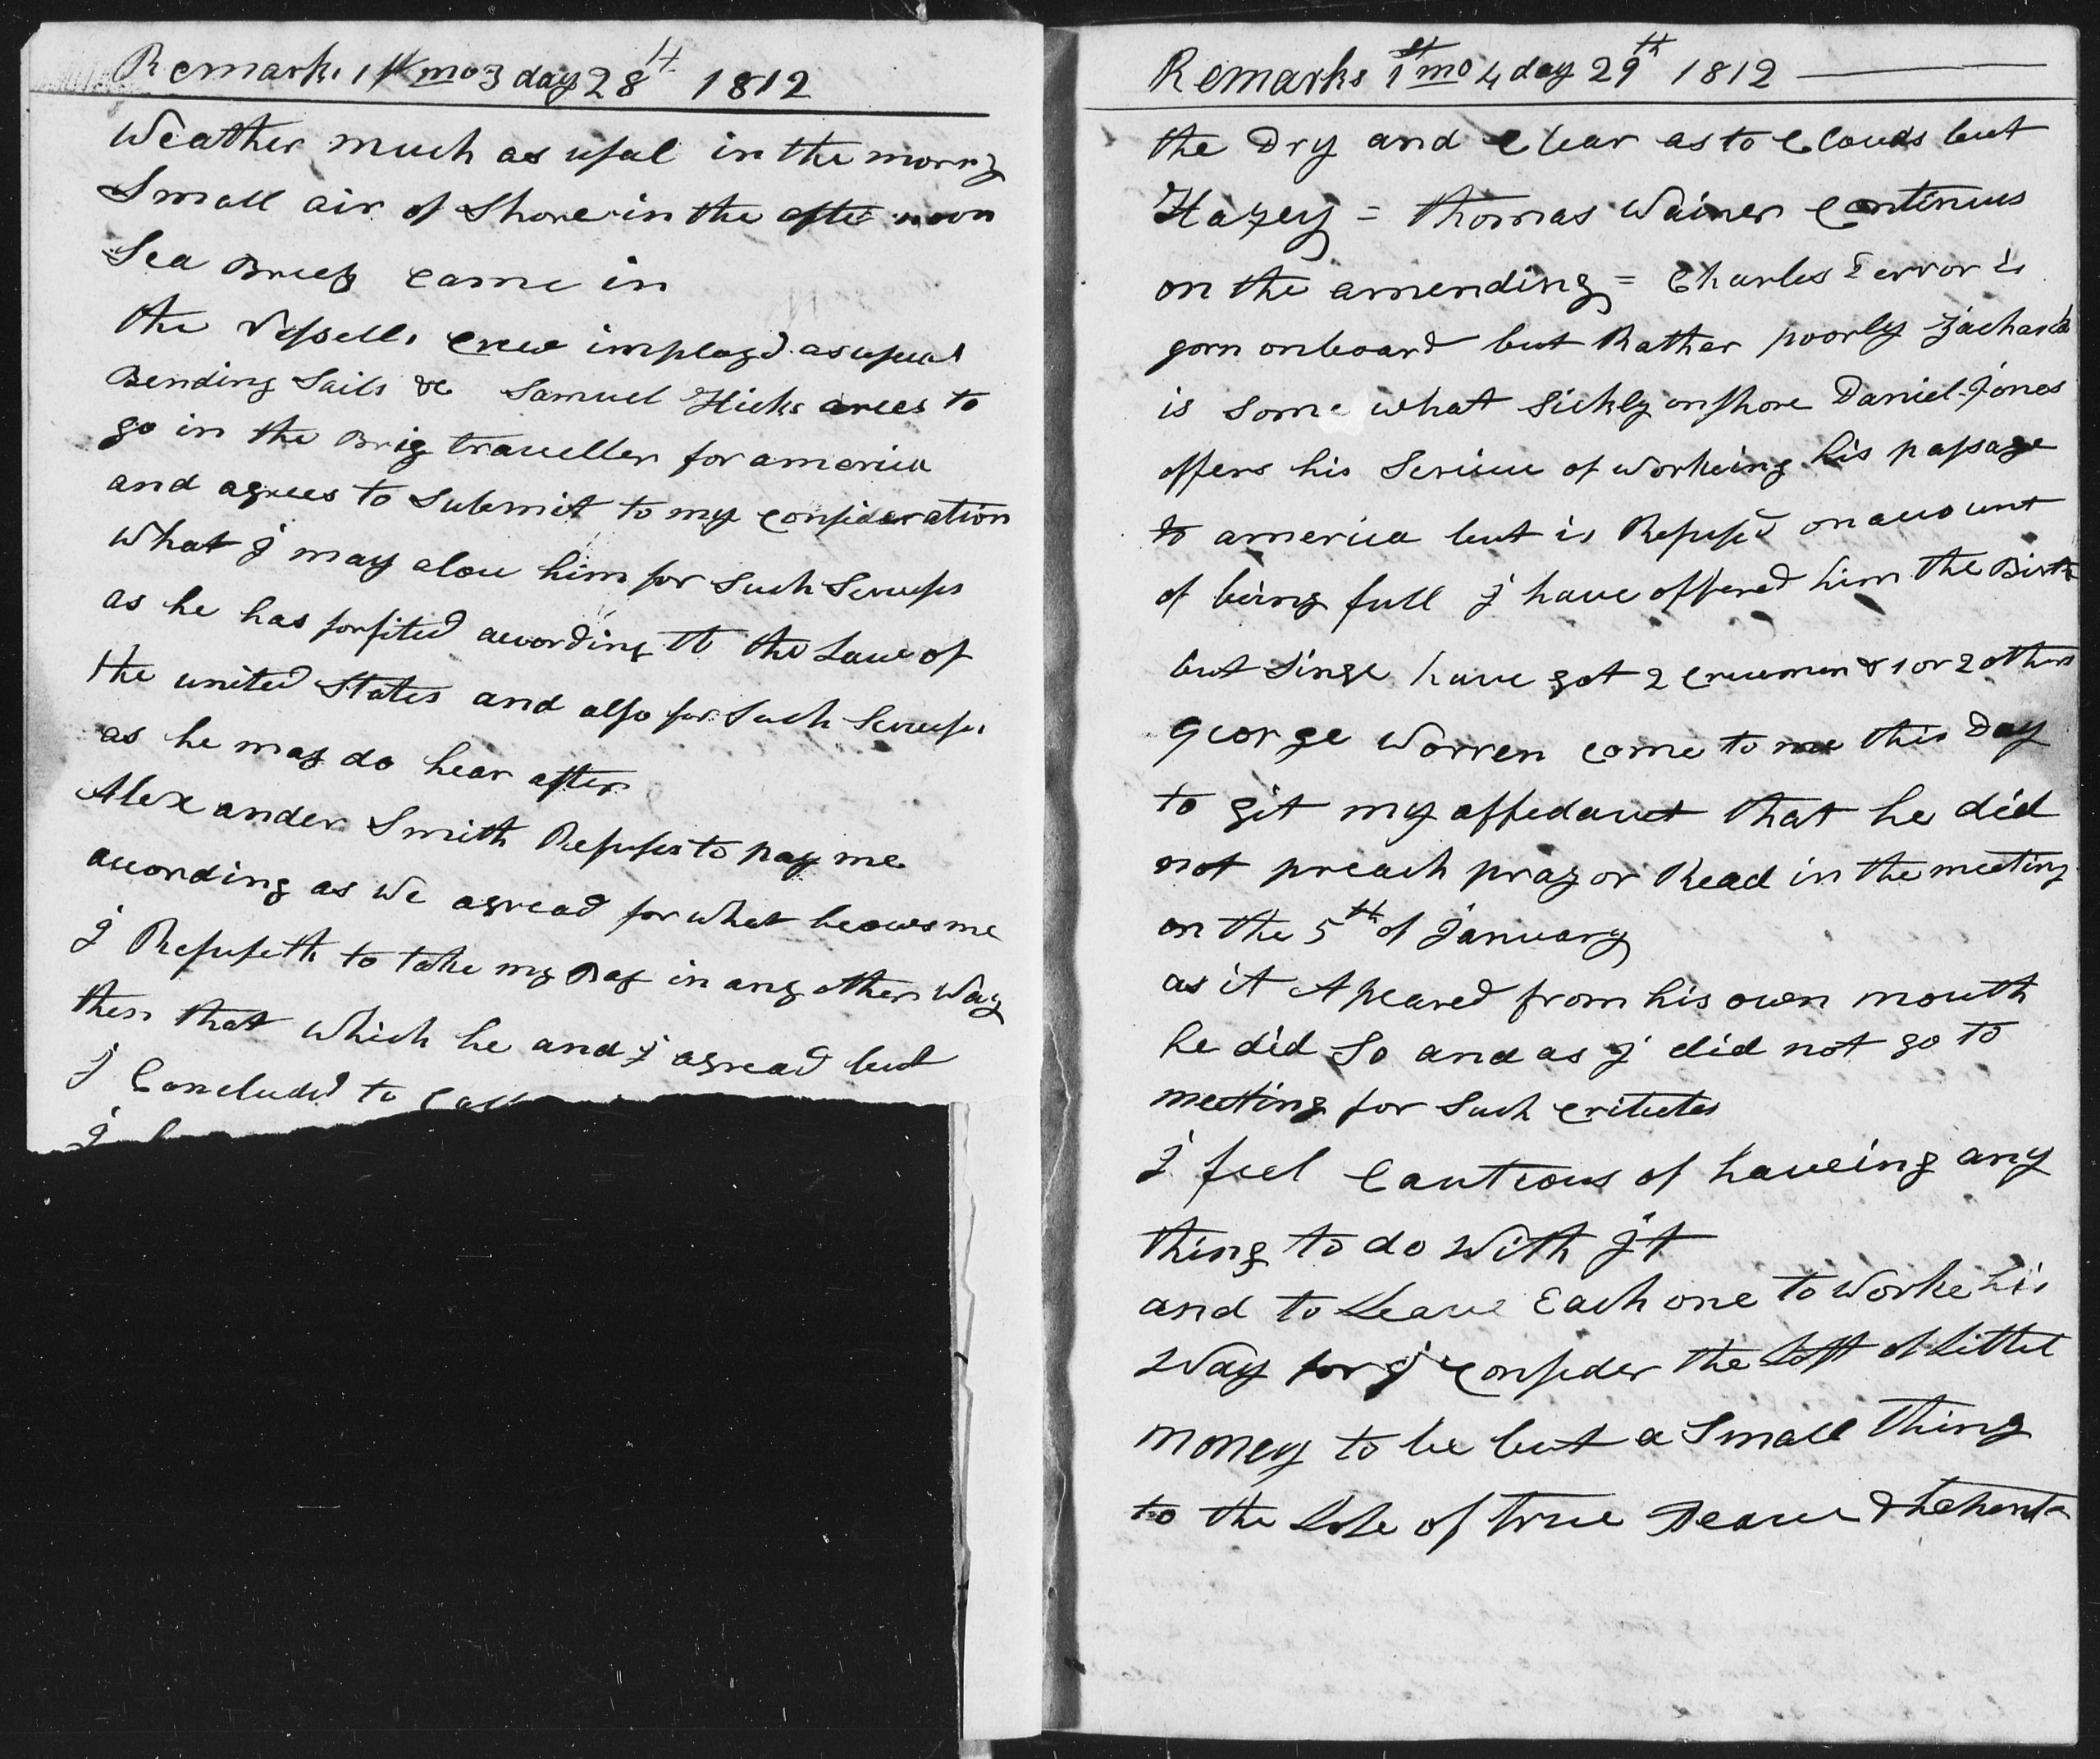 Remarks 1st mo 3 day 28th 1812
Weather much as usal in the morng
Small air of Shore in the after noon
Sea Breez came in
the Vessells crew imployd as usual
Bending Sails &c Samuel Hicks arees to
go in the Brig traveller for america
and agrees to Submit to my consideration
What J may alow him for Such Servises
as he has forfited according to the Law of
the united States and also for Such Servises
as he may do hear after
Alexander Smith Refuses to pay me
according as We agread for what he ows me
J Refuseth to take my Pay in any other Way
then that which he and J agread but
J Concluded to Call
J
Remarks 1st mo 4 day 29th 1812
the Dry and Clear as to Clouds but
Hazey = thomas Wainer Continus
on the amending = Charles Terror is
gorn onboard but Rather poorly Zacharia
is Some what Sickly on shore Daniel Jones
offers his Servicce of workeing his passage
to america but is Refused on account
of being full J have offered him the Birth
but Singe have got 2 cruemen & 1 or 2 others
George Worren come to me this Day
to git my affedavet that he did
not preach pray or Read in the meeting
on the 5th of January
as it Apeared from his own mouth
he did So and as J did not go to
meeting for Such
J feel Cautious of haveing any
thing to do With Jt
and to Leave Each one to Worke his
Way for J Consider the Lost of Littel
money to be but a Small thing
to the Lose of true Peace &